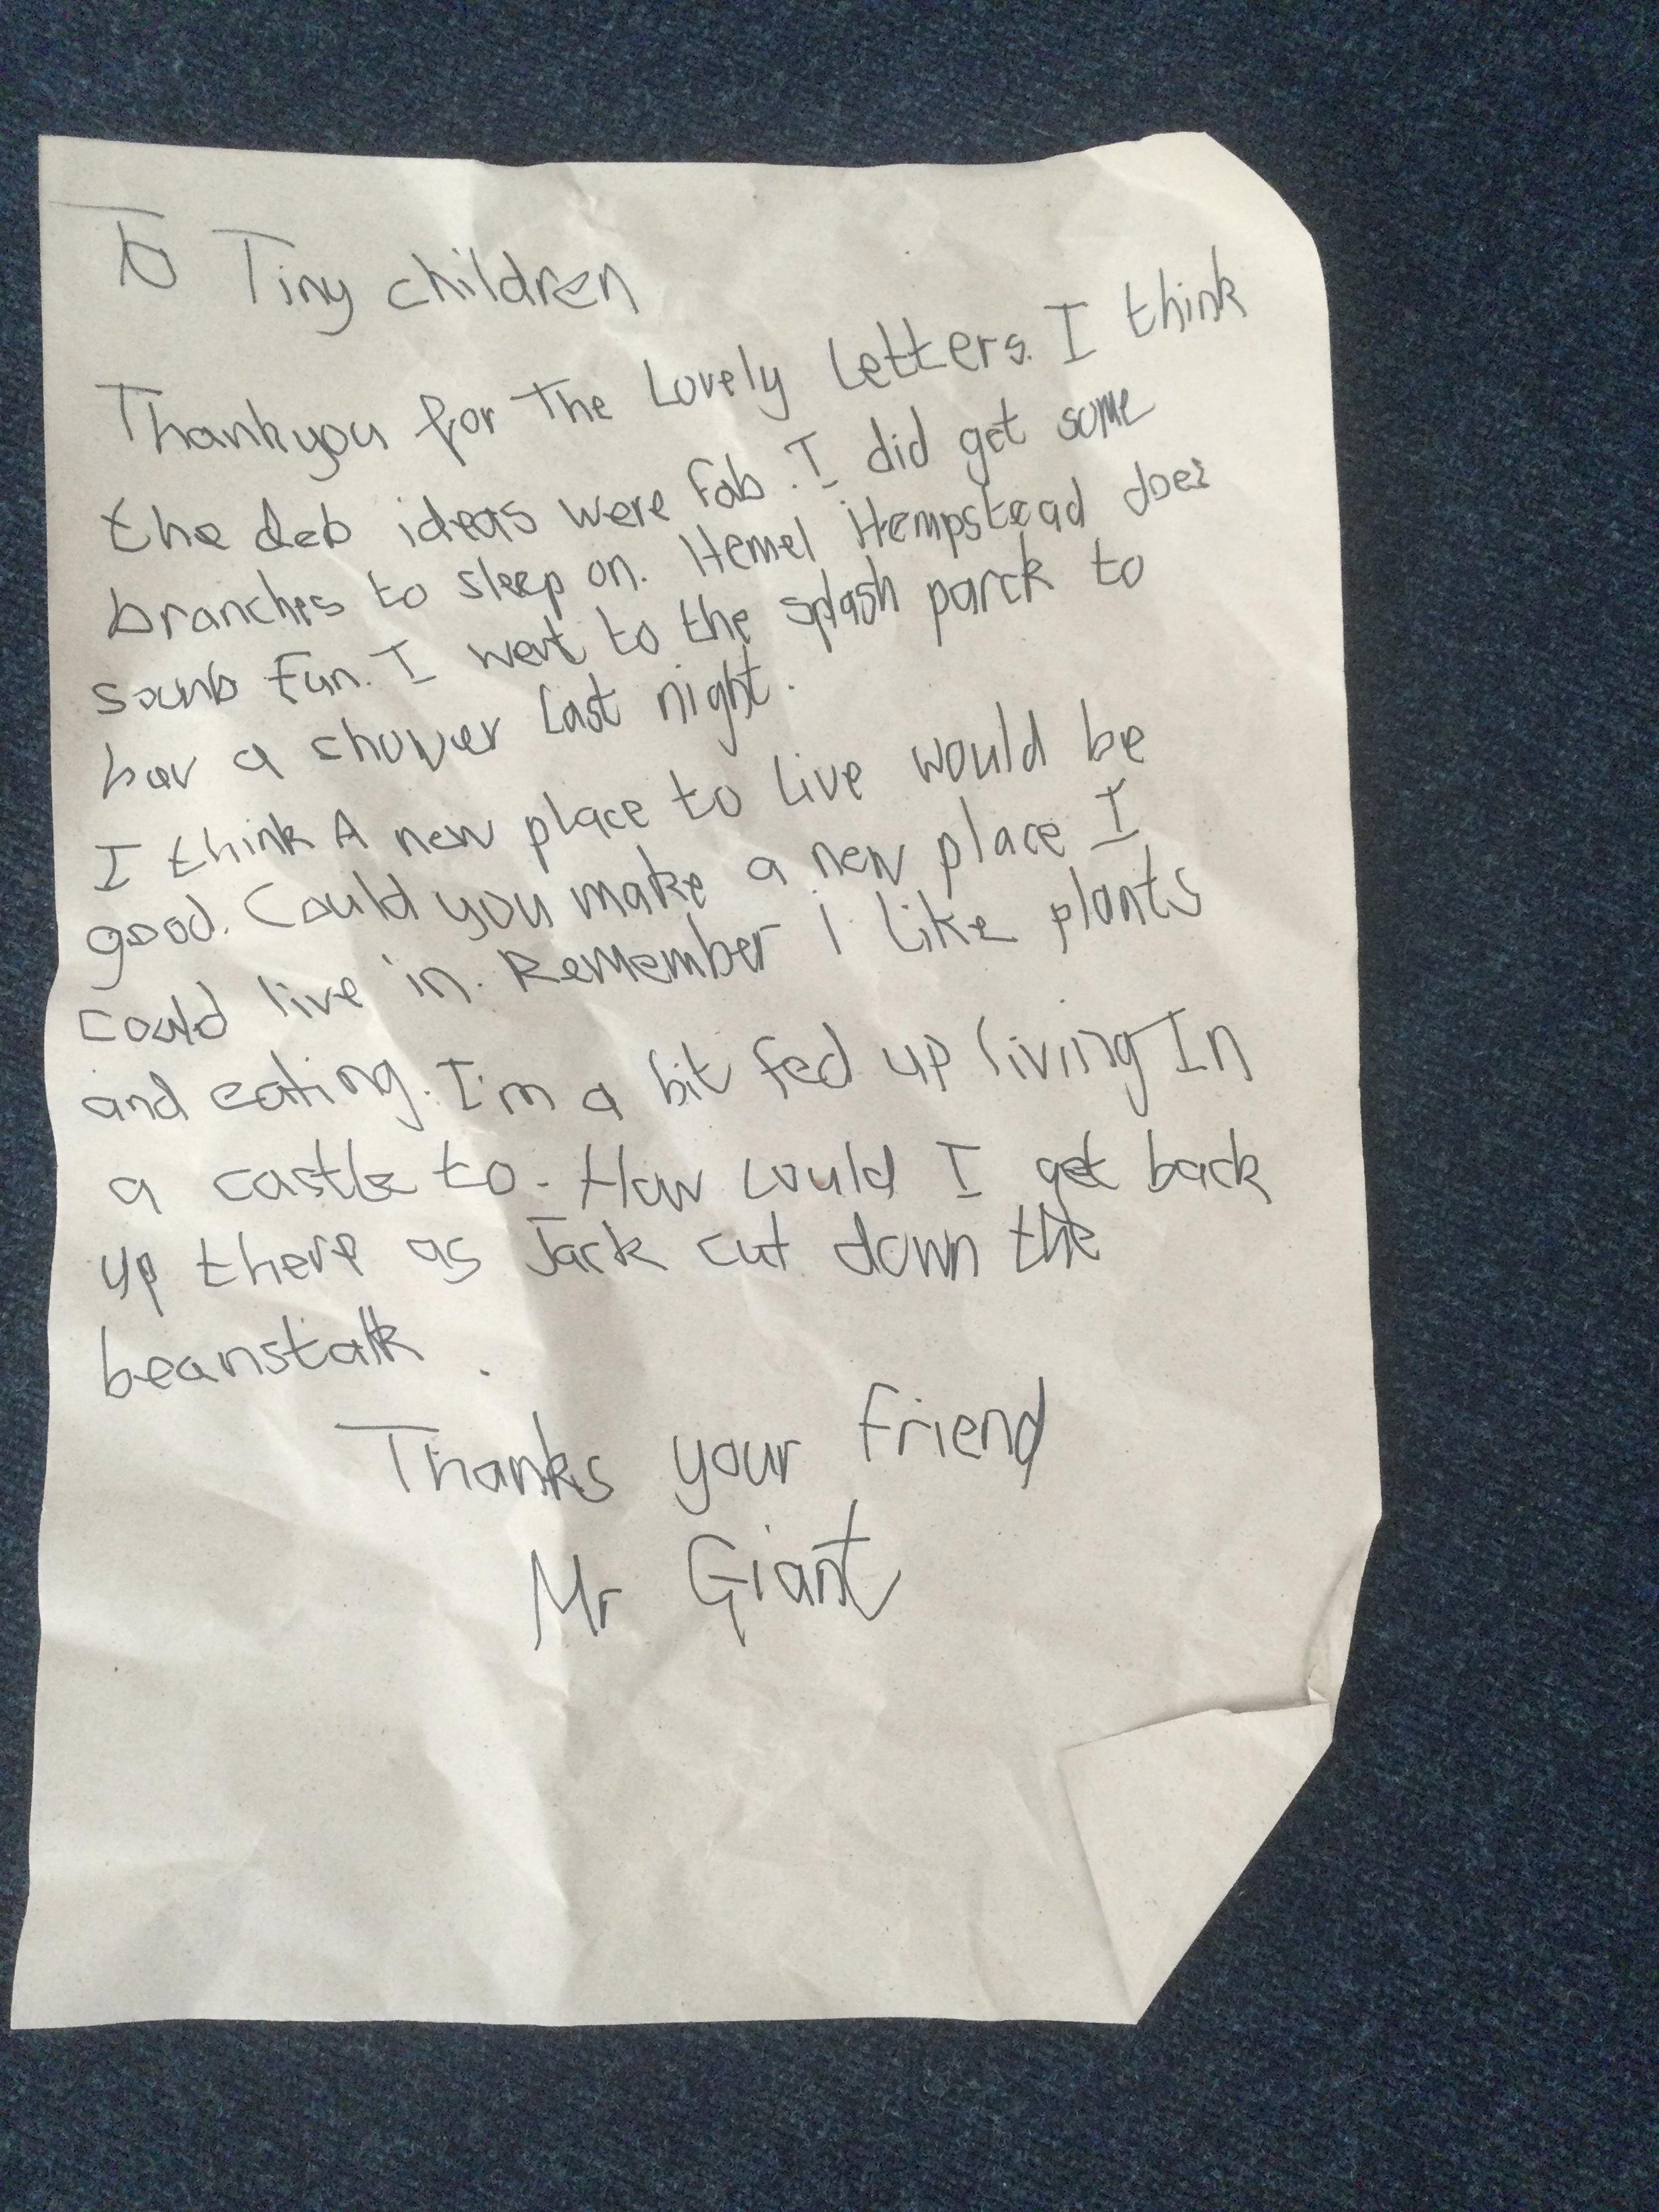 To Tiny children
Thankyou for The Lovely Letters. I think
the deb ideas were fab. I did get some
branches to sleep on. Hemel Hempstead does
sounb fun. I went to the splash parck to
hav a chower last night.
I think A new place to live would be
good. Could you make a new place I
could live in. Remember i like plants
and eating. I'm a bit fed up living In
a castle to. How could I get back
up there as Jack cut down the
beanstalk.
Thanks your friend
Mr Giant